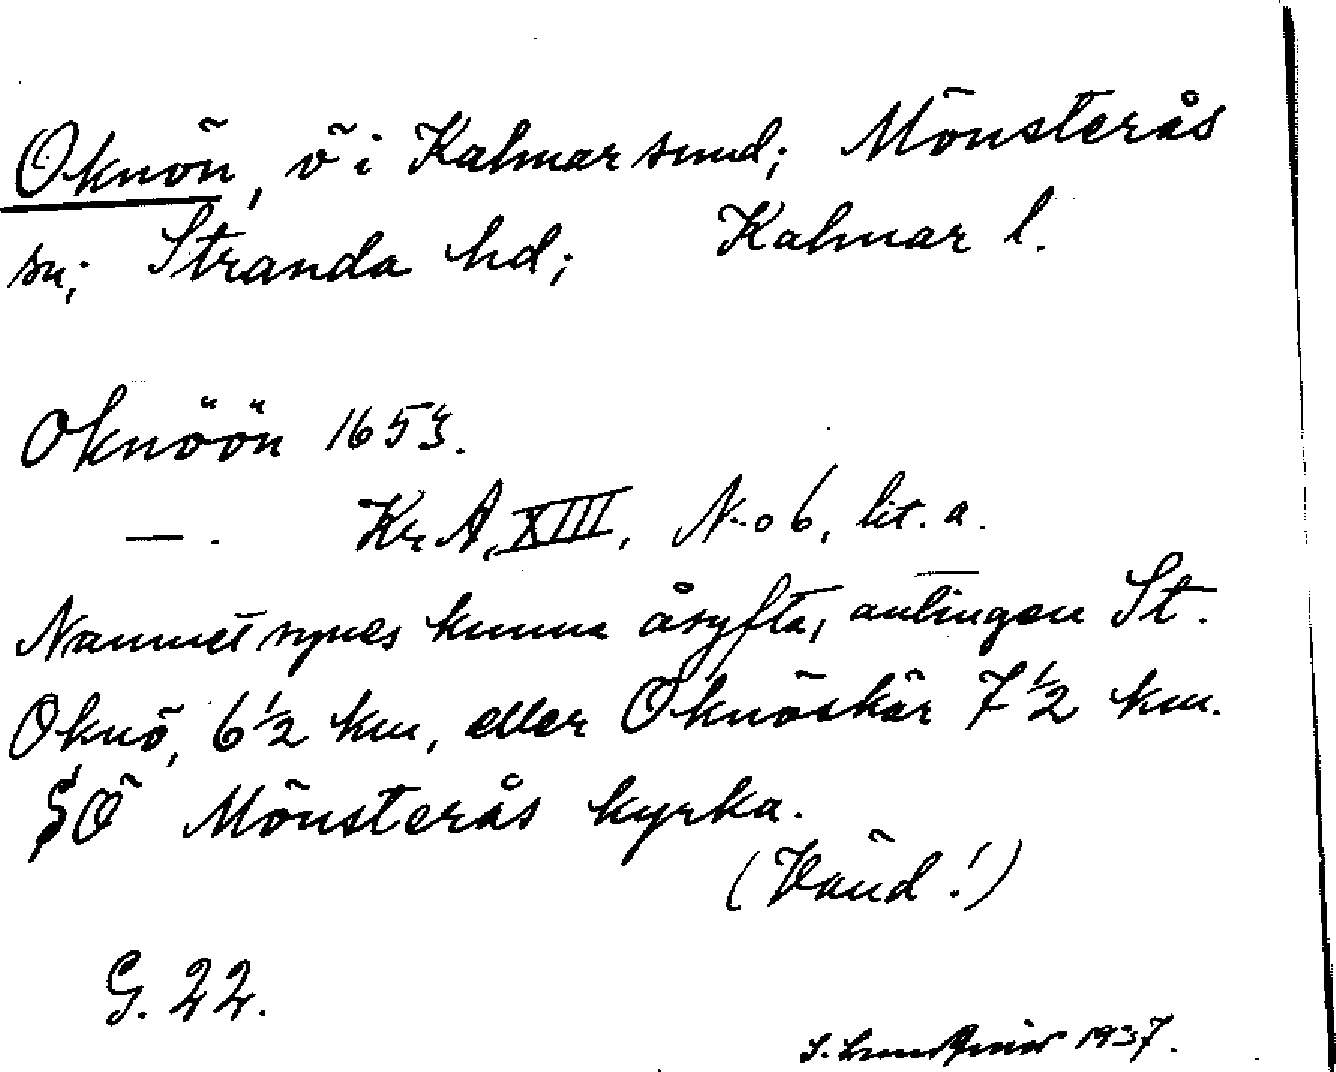 Oknön, ö i Kalmar sund; Mönsterås
sn; Stranda hd; Kalmar l.
Oknöön 1653.
— . Kr. A, XIII, N-o 6, lit. a.
Namnet synes kunna åsyfta, antingen St.
Oknö, 6½ km, eller Oknöskär 7½ km.
SÖ Mönsterås kyrka.
(Vänd!)
G. 22.
1937.